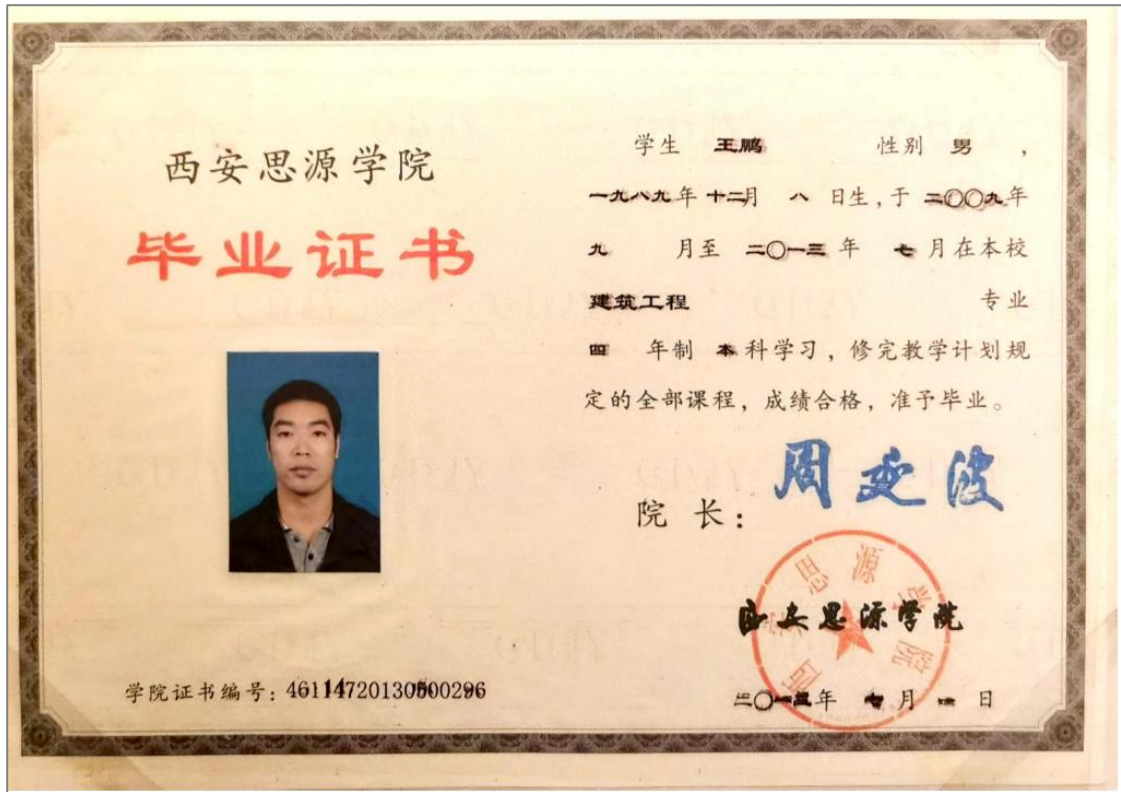 西安思源学院
毕业证书
学院证书编号：46114720130500296
学生 王鹏 性别 男 ，
一九八九年 十二月 八 日生，于 二〇〇九年
九 月至 二〇一三 年 七 月在本校
建筑工程 专业
四 年制 本 科学习，修完教学计划规
定的全部课程，成绩合格，准予毕业。
院 长：周延波
西安思源学院
西安思源学院
二〇一三年 七 月 日